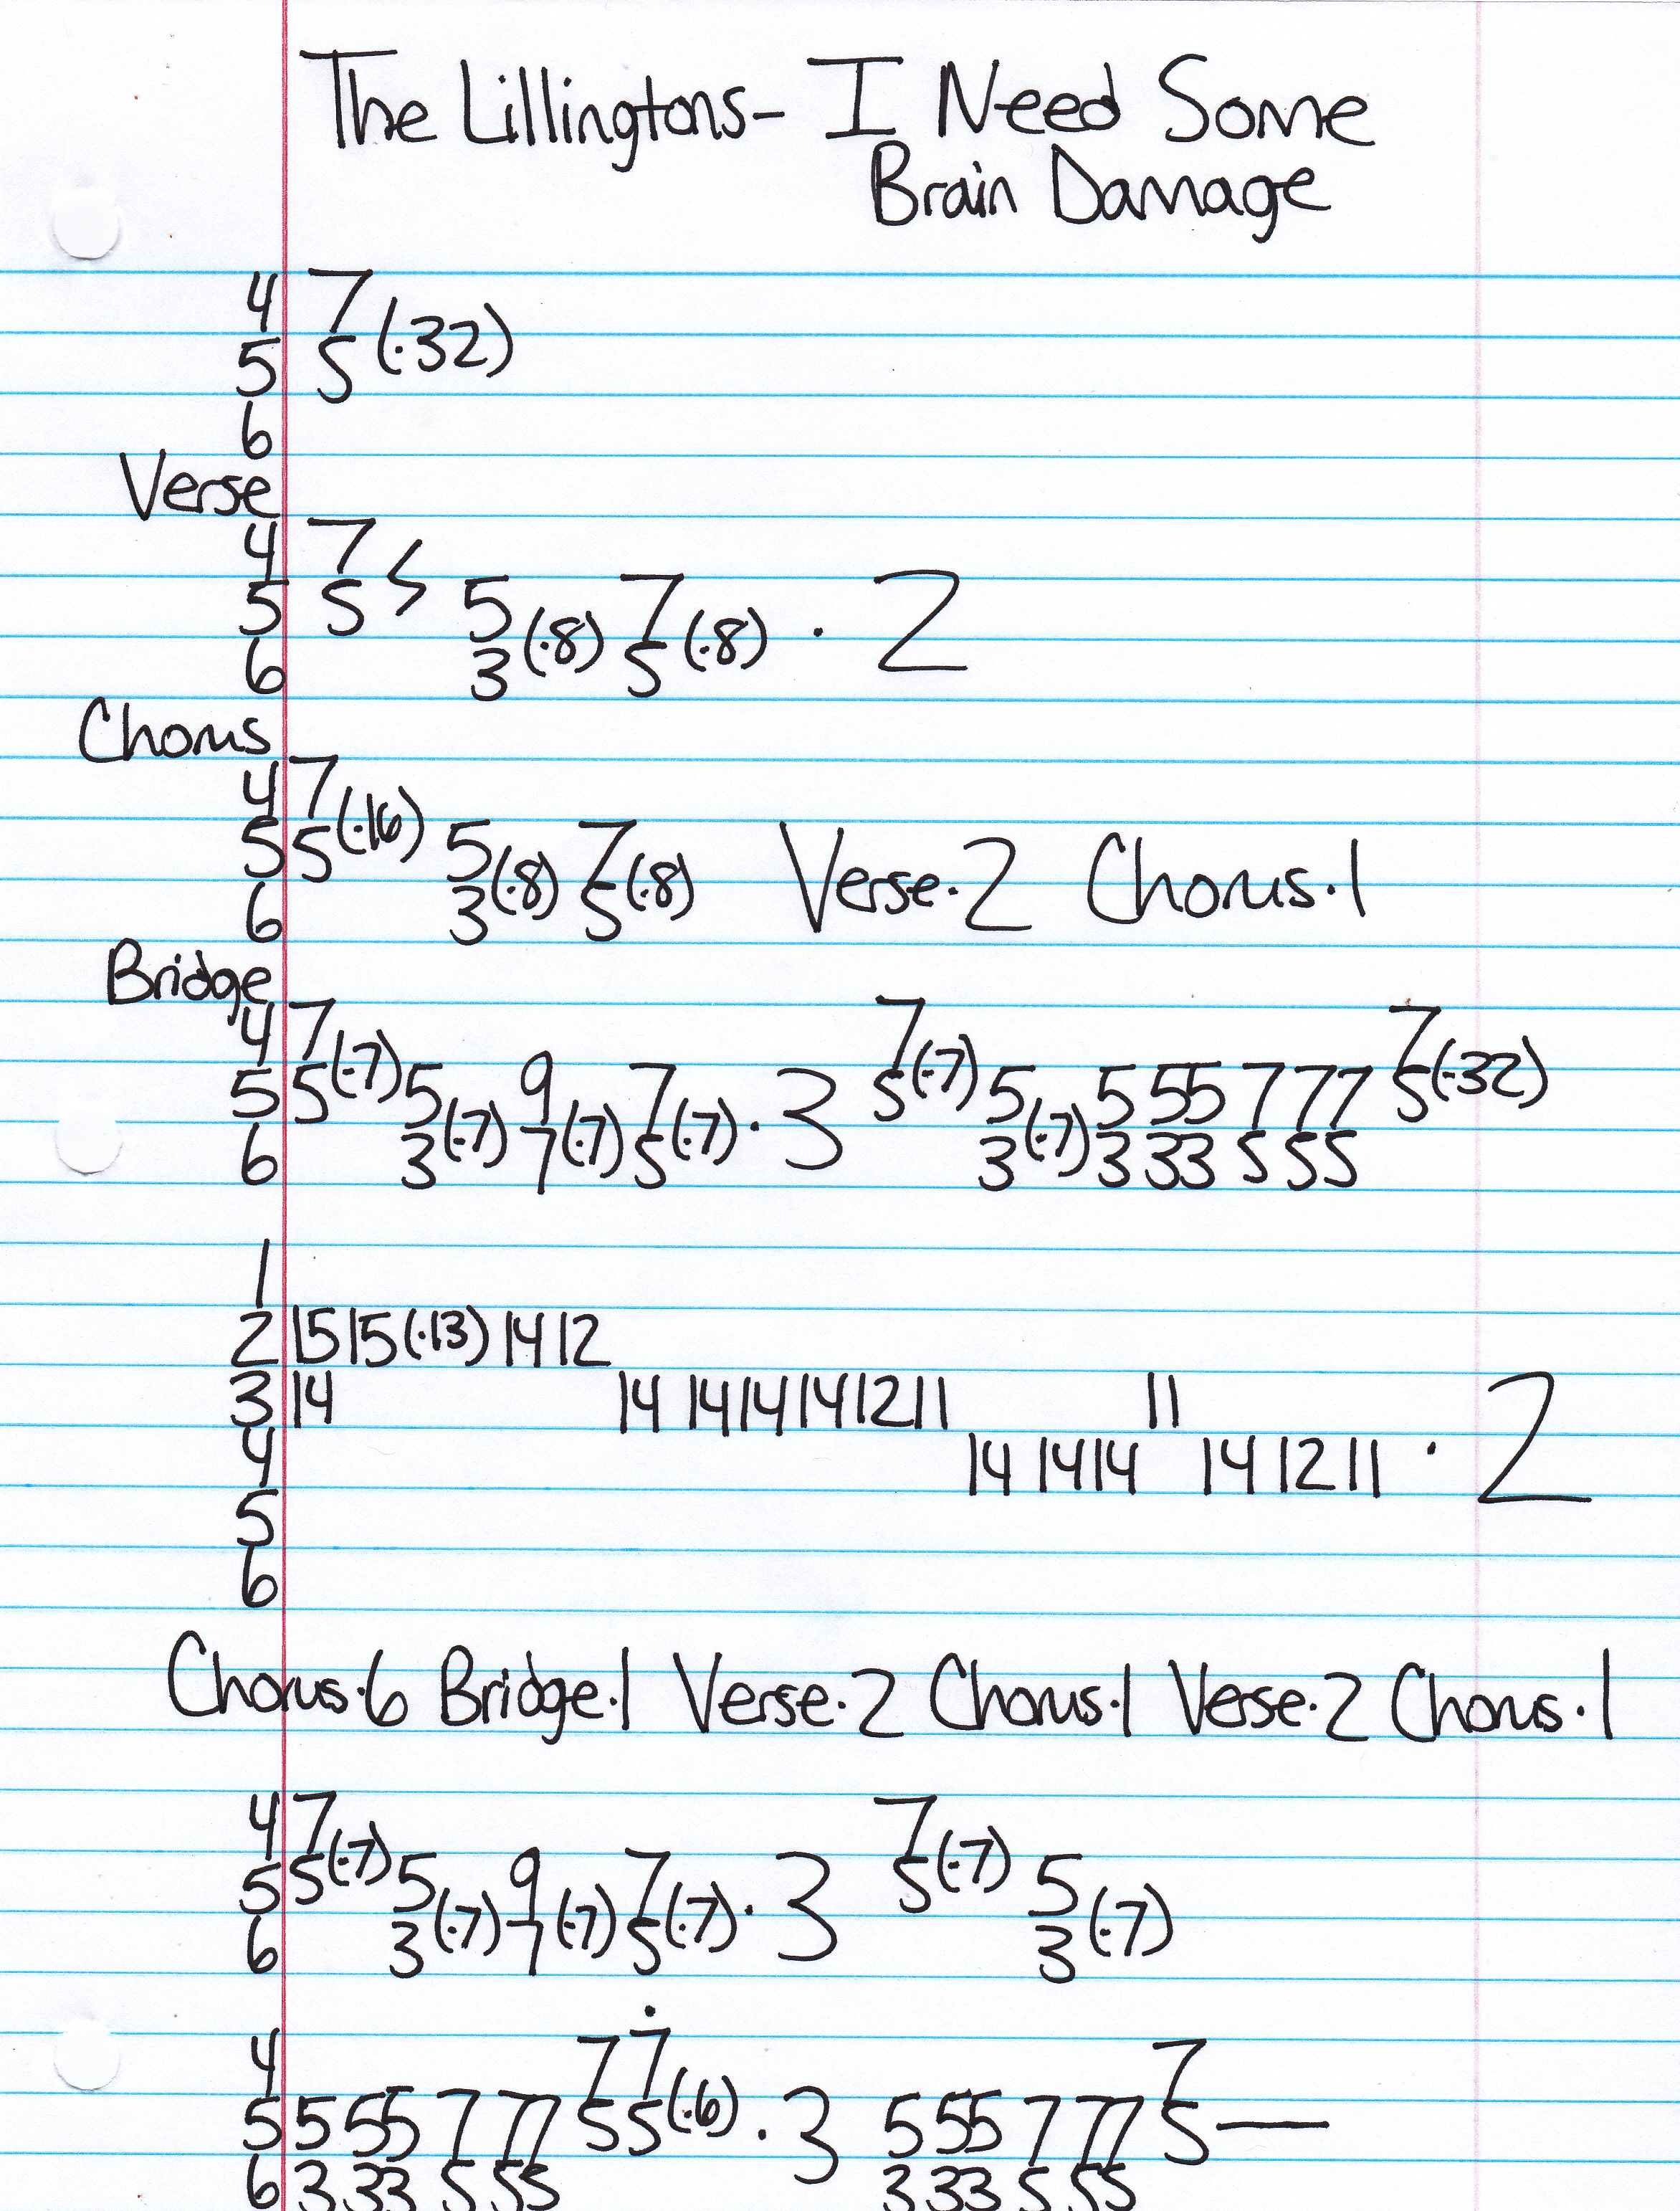 The Lillingtons- I Need Some
Brain Damage
4 7
5 5 (·32)
6
Verse
4 7
5 5 5 7 · 2
6 3 (·8) 5 (·8)
Chorus
4 7
5 5 (·16) 5 7 Verse·2 Chorus·1
6 3 (·8) 5 (·8)
Bridge
4 7 7 7
5 5 (·7) 5 9 7 · 3 5 (·7) 5 5 55 7 77 5 (·32)
6 3 (·7) 7 (·7) 5 (·7) 3 (·7) 3 33 5 55
1
2 15 15 (·13) 14 12
3 14 14 14 14 14 12 11 11
4 14 14 14 14 12 11 · 2
5
6
Chorus·6 Bridge·1 Verse·2 Chorus·1 Verse·2 Chorus·1
4 7 7
5 5 (·7) 5 9 7 · 3 5 (·7) 5
6 3 (·7) 7 (·7) 5 (·7) 3 (·7)
4 7 7 7
5 5 55 7 77 5 5 (·6) · 3 5 55 7 77 5 —
6 3 33 5 55 3 33 5 55